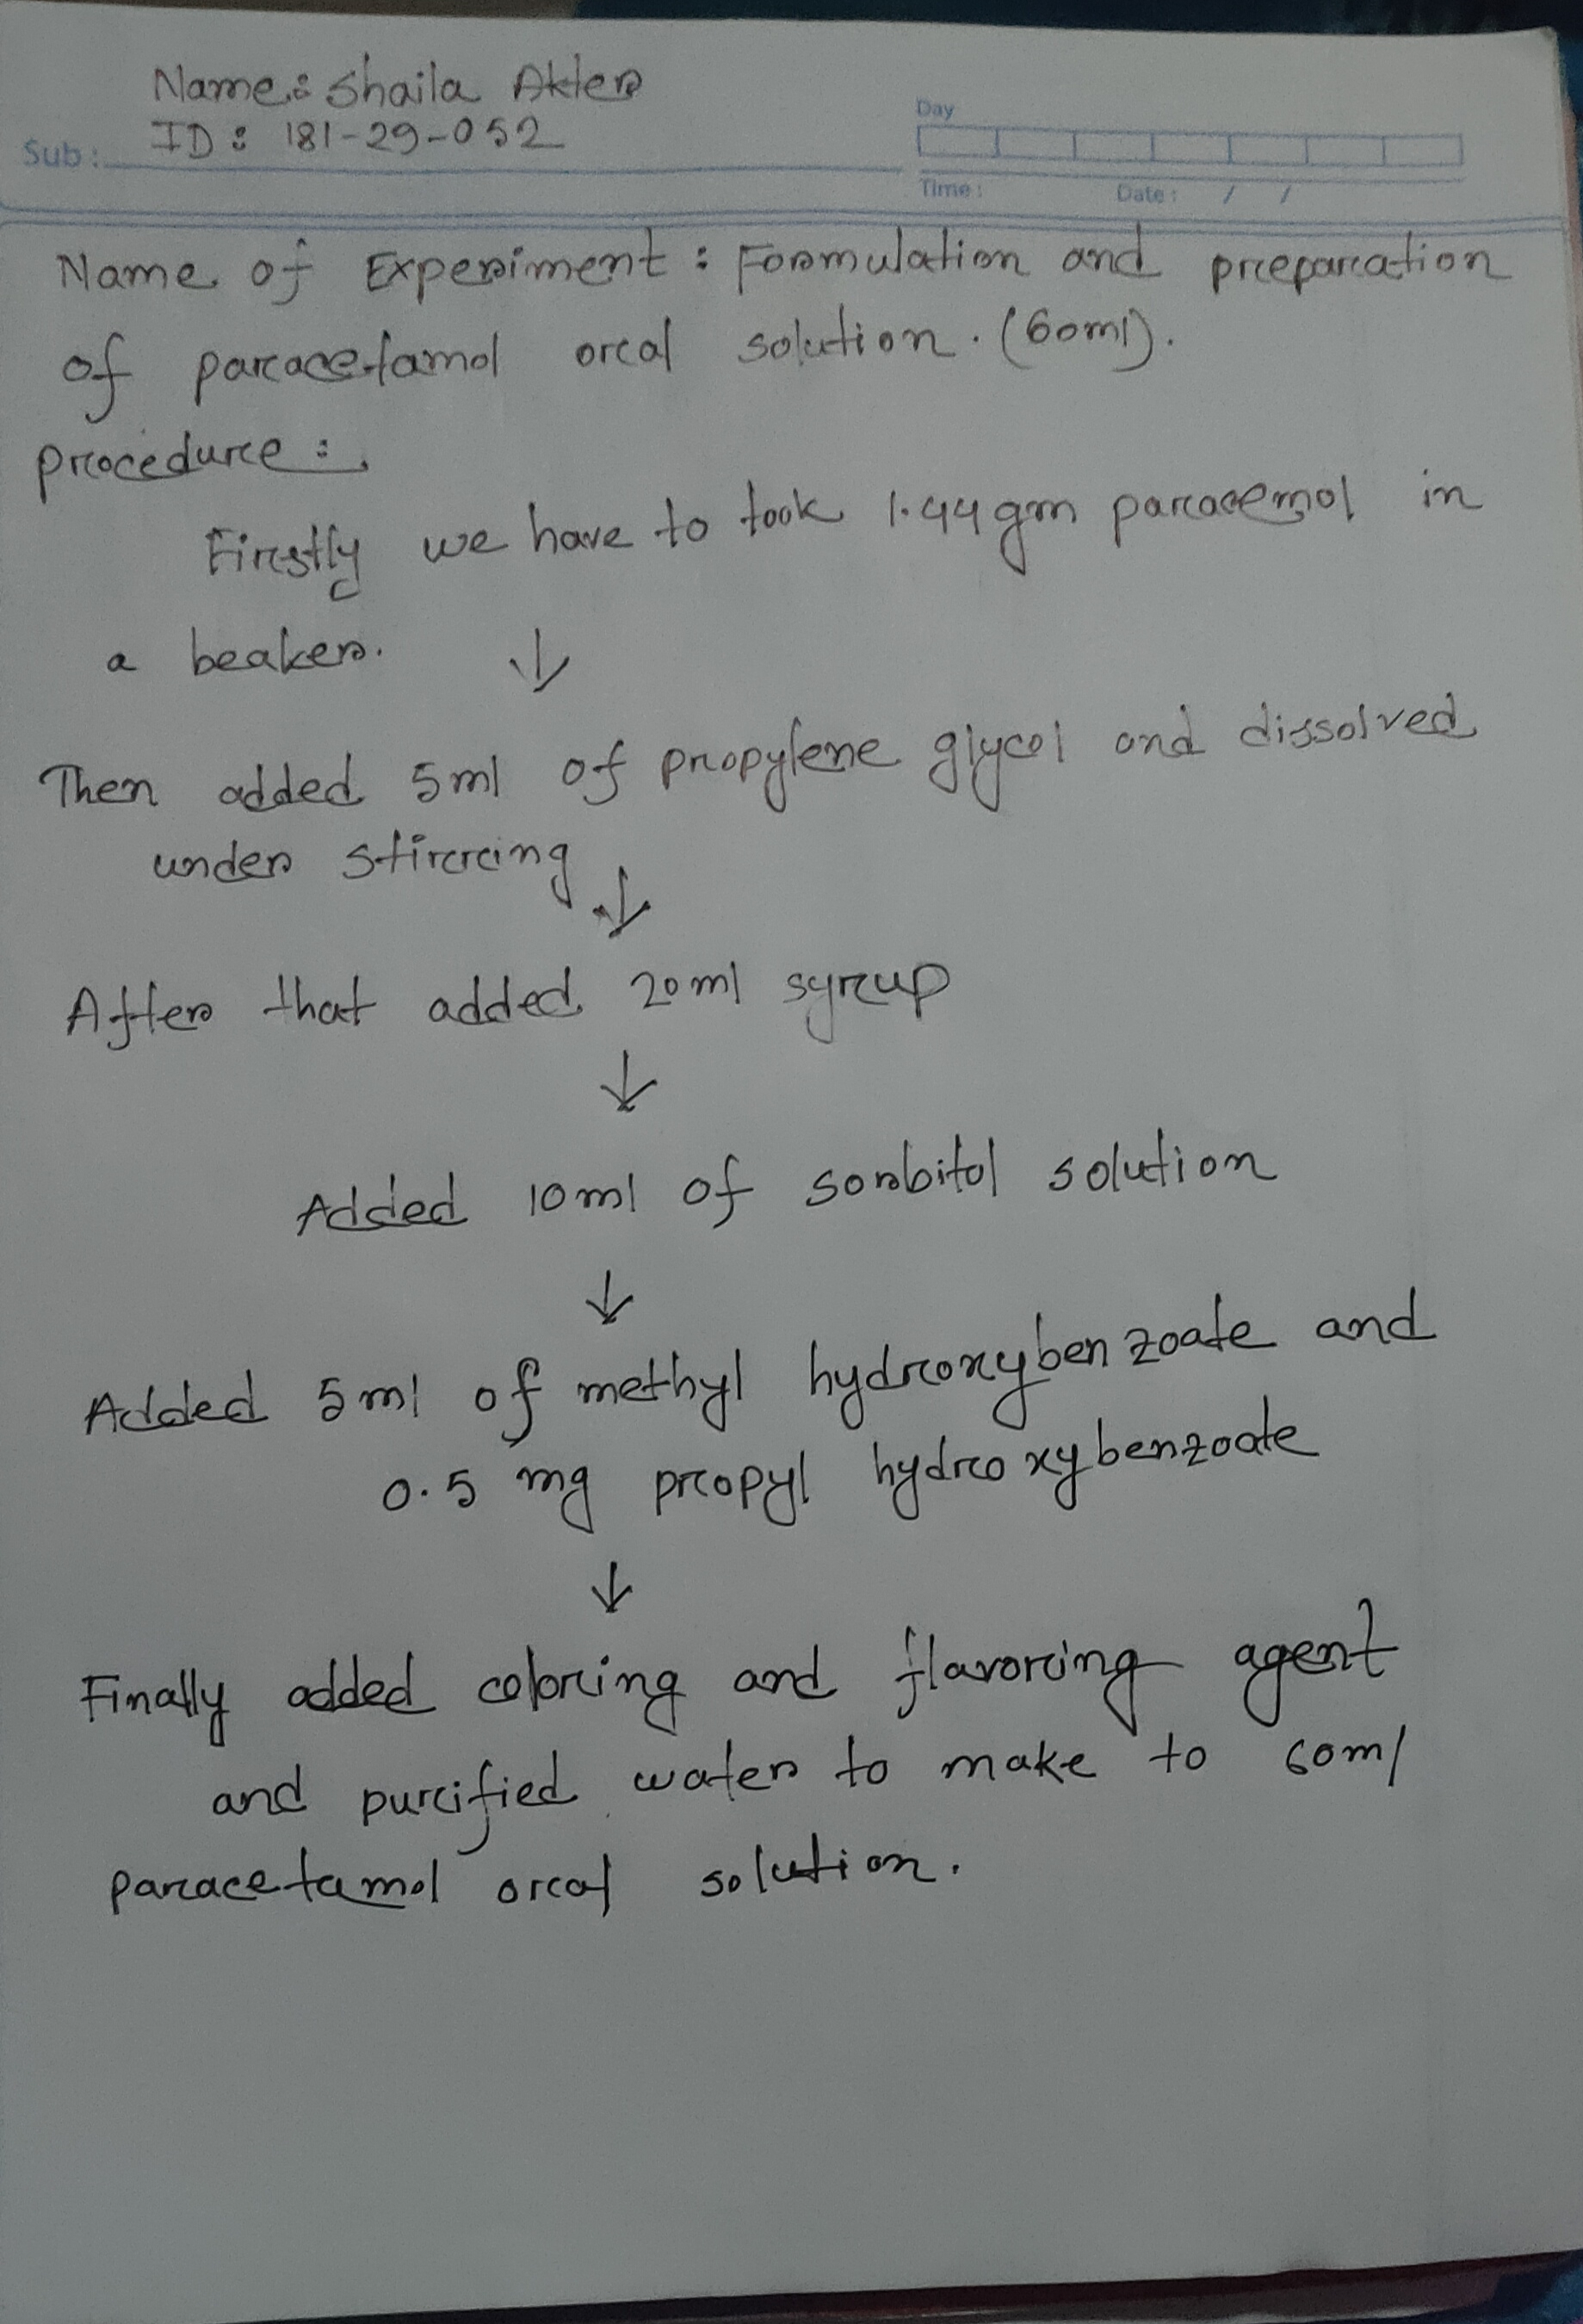 Name: Shaila Akter
ID: 181-29-052
Sub:
Day
Time: Date: / /
Name of Experiment: Formulation and preparation
of paracetamol oral solution. (60ml).
procedure:
Firstly we have to took 1.44gm paracemol in
a beaker. ↓
Then added 5ml of propylene glycol and dissolved
under stirring ↓
After that added 20ml syrup
↓
Added 10ml of sorbitol solution
↓
Added 5ml of methyl hydroxybenzoate and
0.5 mg propyl hydroxybenzoate
↓
Finally added coloring and flavoring agent
and purified water to make to 60ml
paracetamol oral solution.